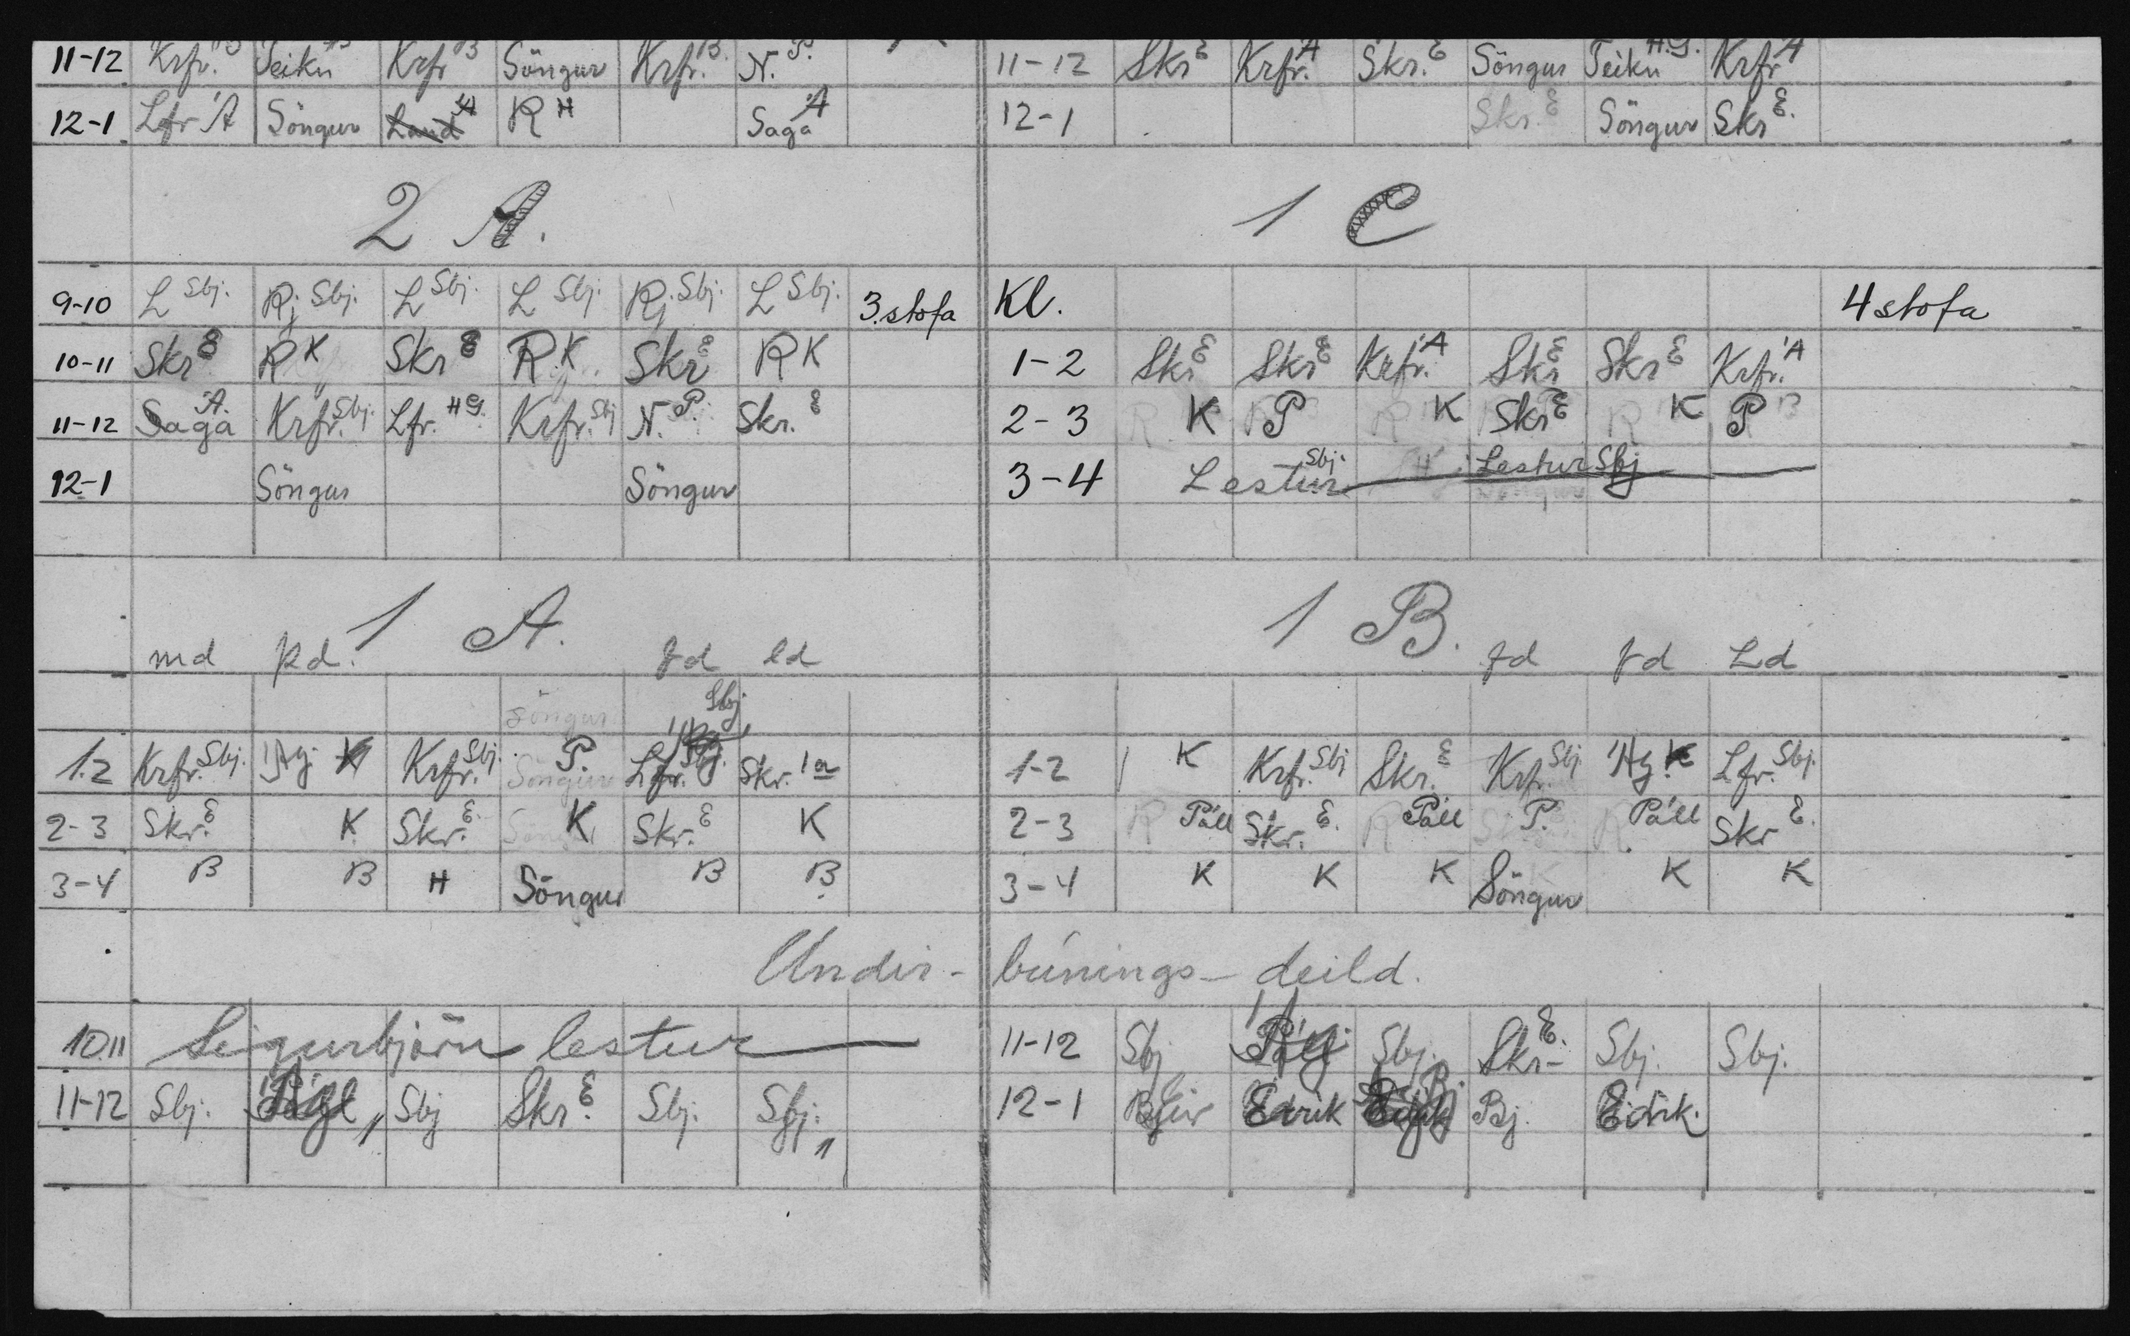 11-12 Krfr. B Teikn Krfr B Söngur Krfr. B N. P. 11-12 Skr E Krfr. Á Skr. E Söngur Teikn H.G. Krfr Á
12-1 Lfr Á Söngur Land R H Saga Á 12-1 Skr. E Söngur Skr E.
2 A. 1 C
9-10 L Sbj. Rj Sbj. L Sbj. L Sbj. Rj. Sbj. L Sbj. 3. stofa Kl. 4 stofa
10-11 Skr E R K Skr E R. K Skr E R K 1-2 Skr E Skr E Krfr. Á Skr E Skr E Krfr. Á
11-12 Saga Á. Krfr. Sbj. Lfr. H G. Krfr. Sbj N. P. Skr. E 2-3 K P K Skr E K P
12-1 Söngur Söngur 3-4 Lestur Sbj. Lestur Sbj
1 A. 1 B.
md þd. fd ld fd fd Ld
Söngur Sbj
1-2 Krfr. Sbj. Ág K Krfr. Sbj. P. Lfr. Skr. 1a 1-2 K Krfr. Sbj Skr. E Krfr. Sbj Ág. K Lfr. Sbj.
2-3 Skr. E K Skr. E K Skr. E K 2-3 R Páll Skr. E. R Páll P. R Páll Skr E.
3-4 B B H Söngur B B 3-4 K K K Söngur K K
Undir-búnings-deild.
10-11 Sigurbjörn lestur 11-12 Sbj Sbj. Skr. E. Sbj. Sbj.
11-12 Sbj. Sbj Skr. E Sbj. Sbj. 12-1 Eirik Bj. Eirik.